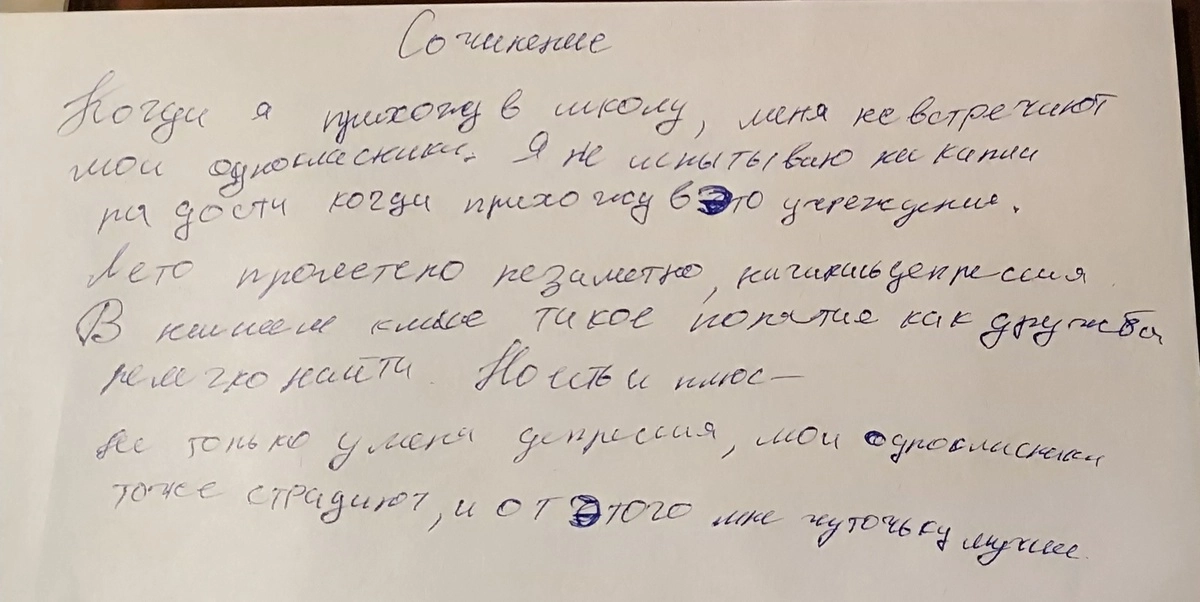 Сочинение
Когда я прихожу в школу, меня не встречают
мои однокласники. Я не испытываю ни капли
радости когда прихожу в это учреждение.
Лето пролетело незаметно, началась депрессия
В нашем классе такое понятие как дружба
нелегко найти. Но есть и плюс —
не только у меня депрессия, мои однокласники
тоже страдают, и от этого мне чуточку лучше.